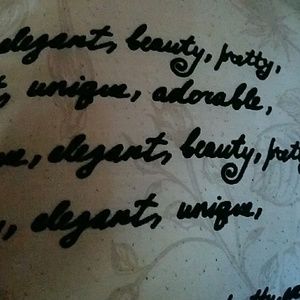 elegant, beauty, pretty,
unique, adorable,
elegant, beauty, pretty
elegant, unique,